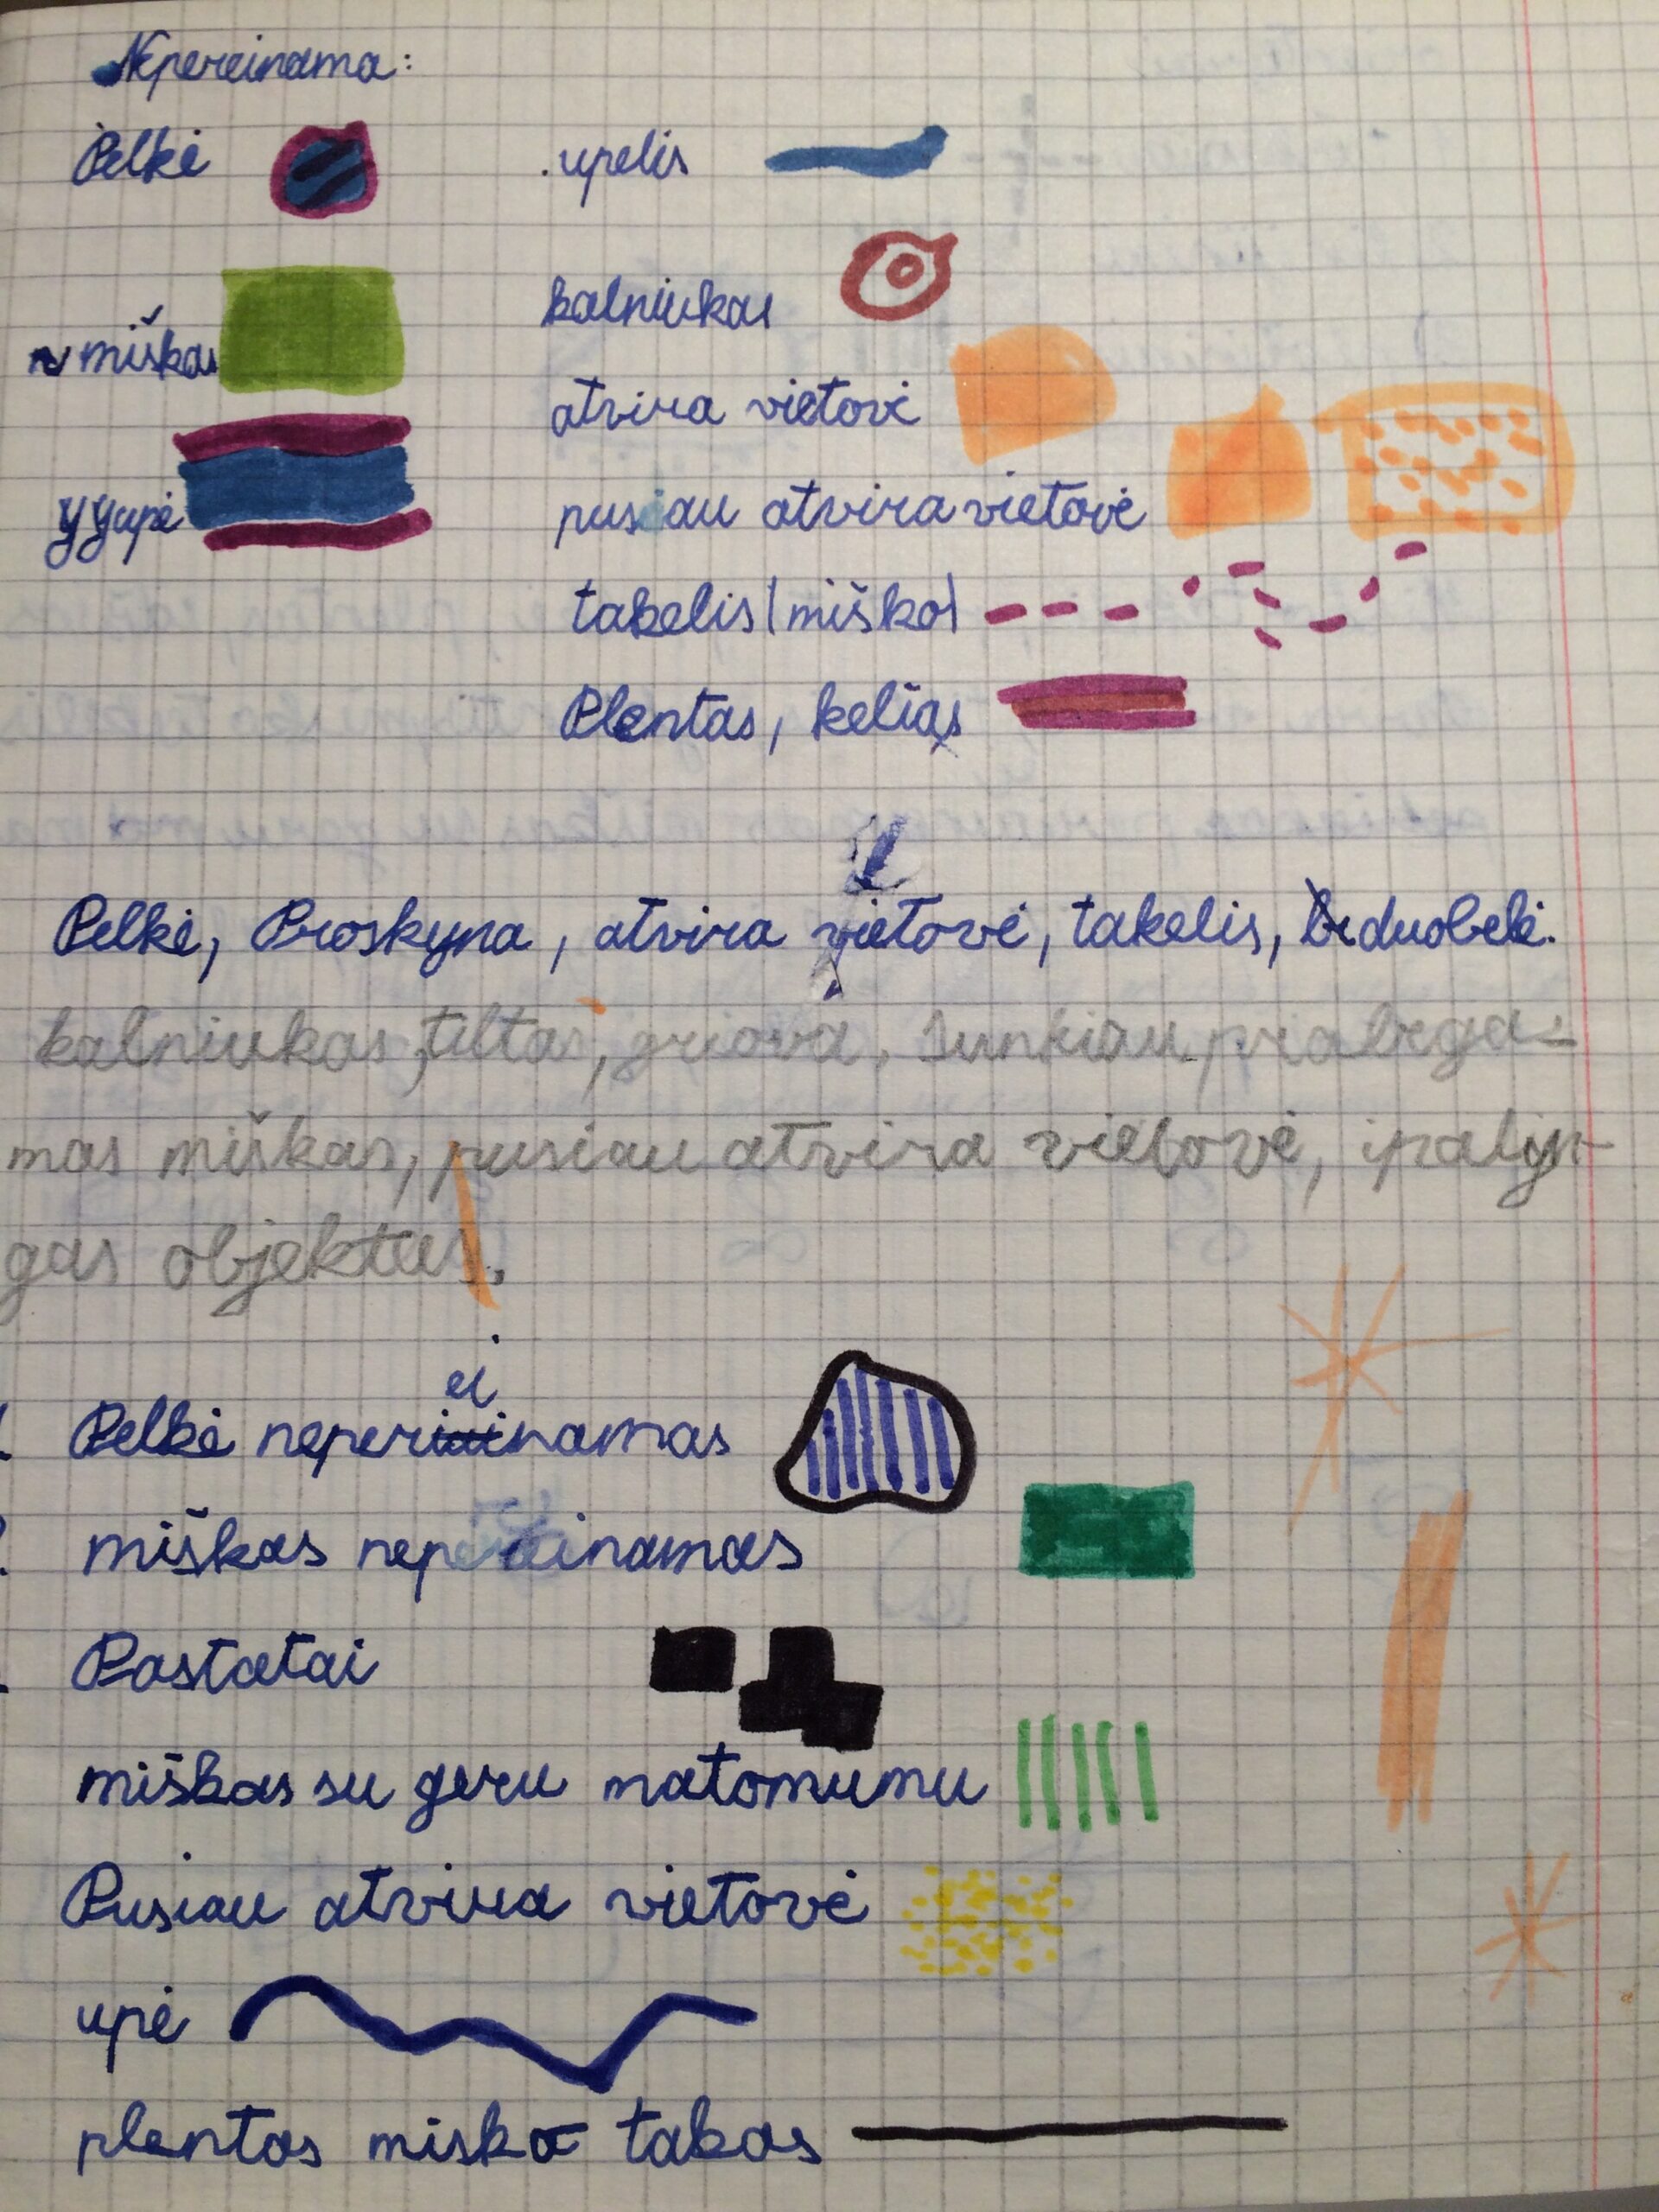 Nepereinama:
Pelkė
upelis
kalniukas
miškas
atvira vietovė
yyupė
pusiau atvira vietovė
takelis|miško|
Plentas, kelias
Pelkė, Proskyna, atvira vietovė, takelis, duobelė.
kalniukas, tiltas, griova, sunkiau prabega-
mas miškas, pusiau atvira vietovė, ipatyn-
gas objektas.
ei
Pelkė neperinamas
miškas nepereinamas
Pastatai
miškas su geru matomumu
Pusiau atvira vietovė
upė
plentas misko takas